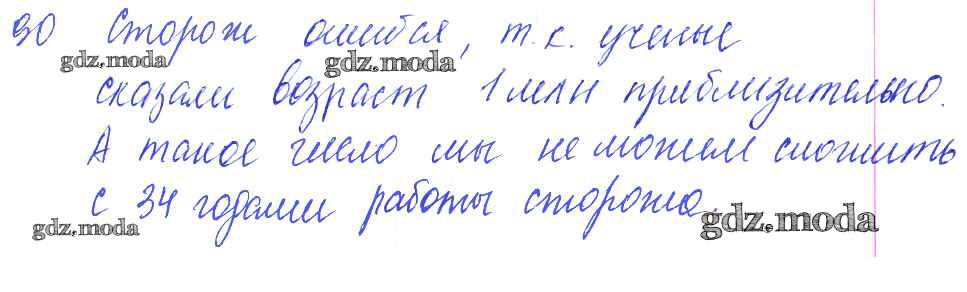 90 Сторож ошибся, т.к. ученые
gdz.moda gdz.moda
сказали возраст 1 млн приблизительно.
А такое число мы не можем сложить
с 34 годами работы сторожа.
gdz.moda gdz.moda